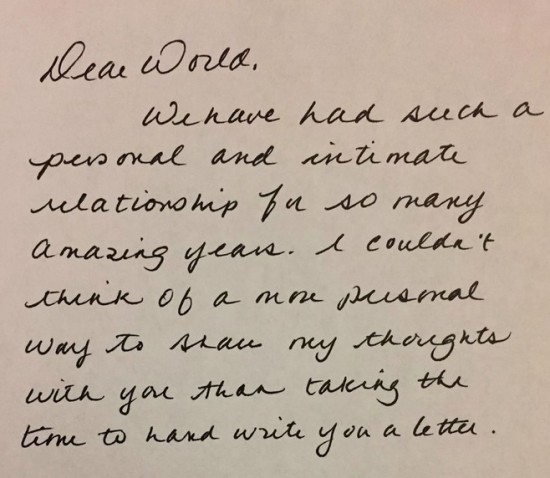 Dear World,
We have had such a
personal and intimate
relationship for so many
amazing years. I couldn't
think of a more personal
way to share my thoughts
with you than taking the
time to hand write you a letter.